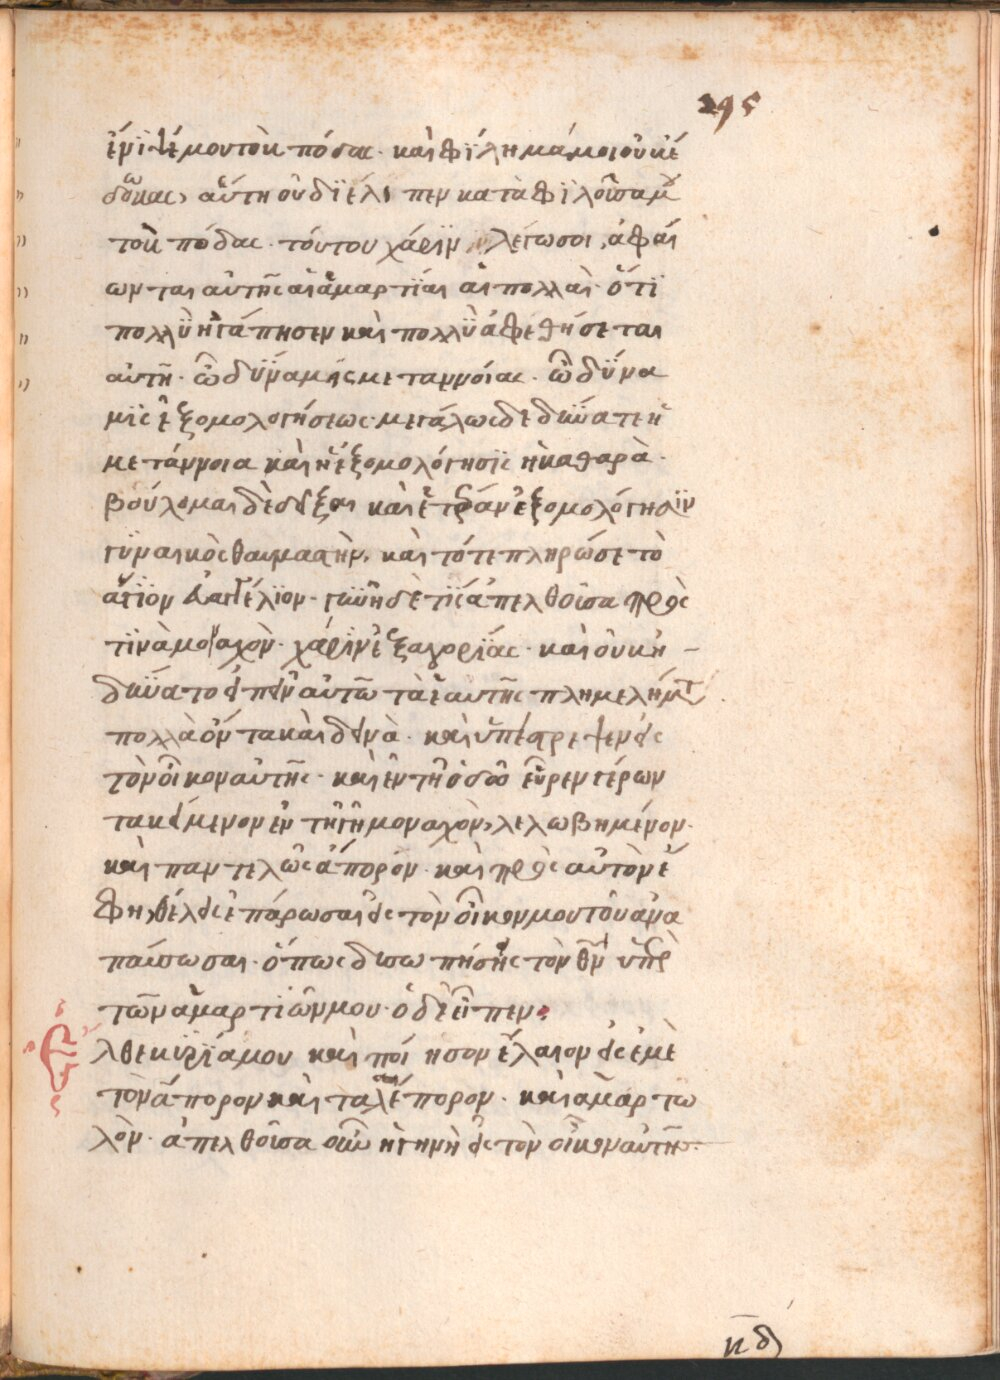 295
ἔνιψέ μου τοὺς πόδας· καὶ φίλημά μοι οὐκ ἔ
δωκας, αὕτη οὐ διέλιπεν καταφιλοῦσά μου
τοὺς πόδας· τούτου χάριν λέγω σοι, ἀφέ
ωνται αὐτῆς αἱ ἁμαρτίαι αἱ πολλαὶ· ὅτι
πολλὺ ἠγάπησεν καὶ πολλὺ ἀφεθήσεται
αὐτῆ· ὢ δύναμις μετανοίας· ὢ δύνα
μις ἐξομολογήσεως· μεγάλως δε δύνατε ἡ
μετάνοια καὶ ἡ ἐξομολόγησις ἡ καθαρὰ·
βούλομαι δὲ δεῖξαι καὶ ἑτέραν ἐξομολόγησιν
γυναικὸς θαυμαστὴν, καὶ τότε πληρώσε τὸ
ἅγιον εὐαγγέλιον· γυνὴ δὲ τὶς ἀπελθοῦσα πρὸς
τινὰ μοναχὸν· χάριν ἐξαγορίας· καὶ οὐκ ἠ
δύνατο εἰπεῖν αὐτῶ τὰ ἑαυτῆς πλημελήματα
πολλὰ ὄντα καὶ δεινὰ· καὶ ὑπέστρεψεν εἰς
τὸν οἶκον αὐτῆς· καὶ ἐν τῆ ὁδῶ εὗρεν γέρων
τα κείμενον ἐν τῆ γῆ μοναχὸν, λελωβημένον·
καὶ παντελῶς ἄπορον· καὶ πρὸς αὐτὸν ἔ
φη, θέλεις ἐπάρω σαι εἰς τὸν οἶκον μου τοῦ ἀνα
παύσω σαι· ὅπως δισωπήσης τὸν θν ὑπὲρ
τῶν ἁμαρτιῶν μου· ὁ δὲ εἶπεν·
ἐλθε κυρία μου καὶ ποίησον ἔλαιον εἰς ἐμὲ
τὸν ἄπορον καὶ ταλέπορον· καὶ ἁμαρτω
λὸν· ἀπελθοῦσα οὖν ἡ γηνὴ εἰς τὸν οἶκον αὐτῆς·
κδ